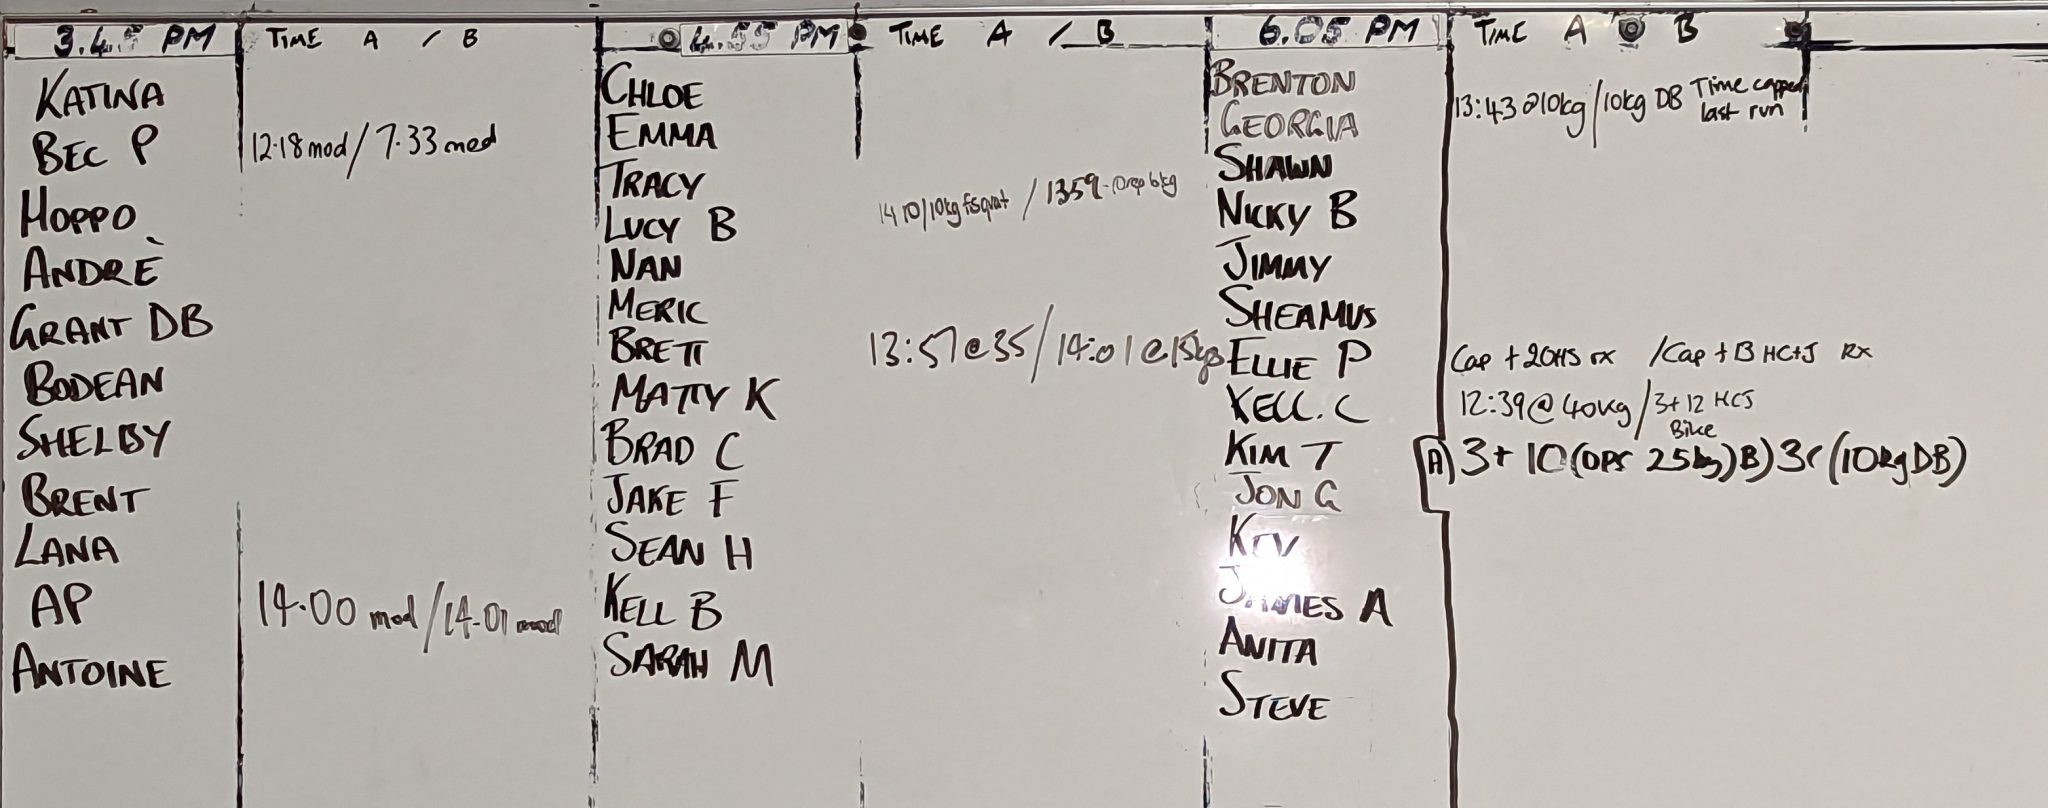 3.45 PM TIME A / B
KATINA
BEC P 12.18 mod / 7.33 mod
HOPPO
ANDRÈ
GRANT DB
BODEAN
SHELBY
BRENT
LANA
AP 14.00 mod / 14.01 mod
ANTOINE
4.55 PM TIME A / B
CHLOE
EMMA
TRACY
LUCY B 14 10/10kg fsquat / 1359 - 10rep 6kg
NAN
MERIC
BRETT 13:57 @ 35 / 14:01 @ 15kgs
MATTY K
BRAD C
JAKE F
SEAN H
KELL B
SARAH M
6.05 PM TIME A B
BRENTON 13:43 @10kg / 10kg DB Time capped
last run
GEORGIA
SHAWN
NICKY B
JIMMY
SHEAMUS
ELLIE P Cap + 20HS rx / Cap + 13 HC+J RX
KELL. C 12:39 @ 40kg / 3+12 HCJ
Bike
KIM T A) 3+ 10 (25kg) B) 3r (10kg DB)
JON G
KEV
JAMES A
ANITA
STEVE